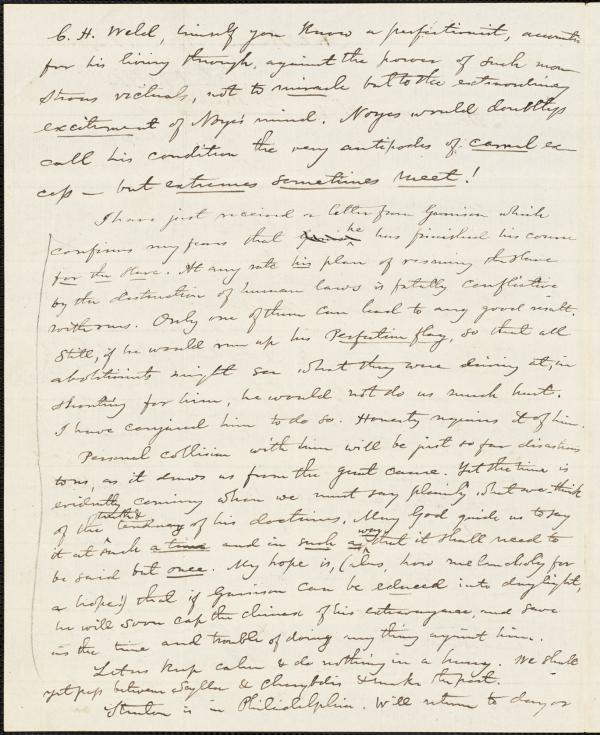 C. H. Weld, himself you know a perfectionist, accounts
for his living through, against the power of such mon-
strous victuals, not to miracle but to the extraordinary
excitement of Noyes' mind. Noyes would doubtless
call his condition the very antipodes of carnal ex-
cess — but extremes sometimes meet!
I have just received a letter from Garrison which
confirms my fears that he has finished his course
for the slave. At any rate his plan of rescuing the slave
by the destruction of human laws is fatally conflictive
with ours. Only one of them can lead to any good result.
Still, if he would run up his Perfection flag, so that all
abolitionists might see what they were driving at, in
shouting for him, he would not do us much hurt.
I have conjured him to do so. Honesty requires it of him.
Personal collision with him will be just so far disastrous
to us, as it draws us from the great cause. Yet the time is
evidently coming when we must say plainly what we think
of the truth & tendency of his doctrines. May God guide us to say
it at such a time and in such a way that it shall need to
be said but once. My hope is, (alas, how melancholy for
a hope!) that if Garrison can be educed into daylight,
he will soon cap the climax of his extravagance, and save
us the time and trouble of doing any thing against him.
Let us keep calm & do nothing in a hurry. We shall
yet pass between Scylla & Charybdis & make the port.
Stanton is in Philadelphia. Will return to day or